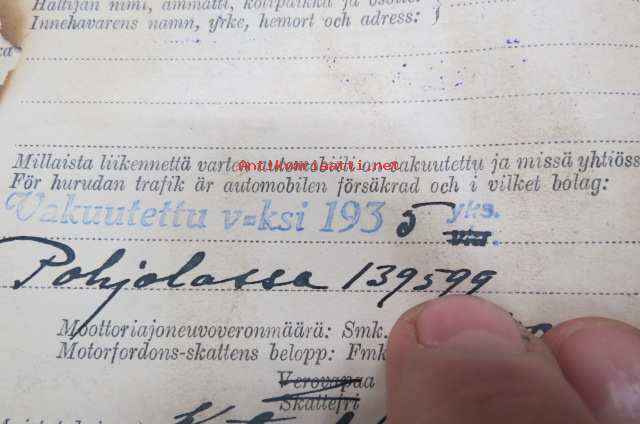 Haltijan nimi, ammatti, kotipaikka ja osoite:
Innehavarens namn, yrke, hemort och adress:
Millaista liikennettä varten automobiili on vakuutettu ja missä yhtiöss
För hurudan trafik är automobilen försäkrad och i vilket bolag:
Antikvariaatti.net
Vakuutettu v=ksi 193 5 yks.
Pohjolassa 139599
Moottoriajoneuvoveronmäärä: Smk.
Motorfordons-skattens belopp: Fmk
Verovapaa
Skattefri